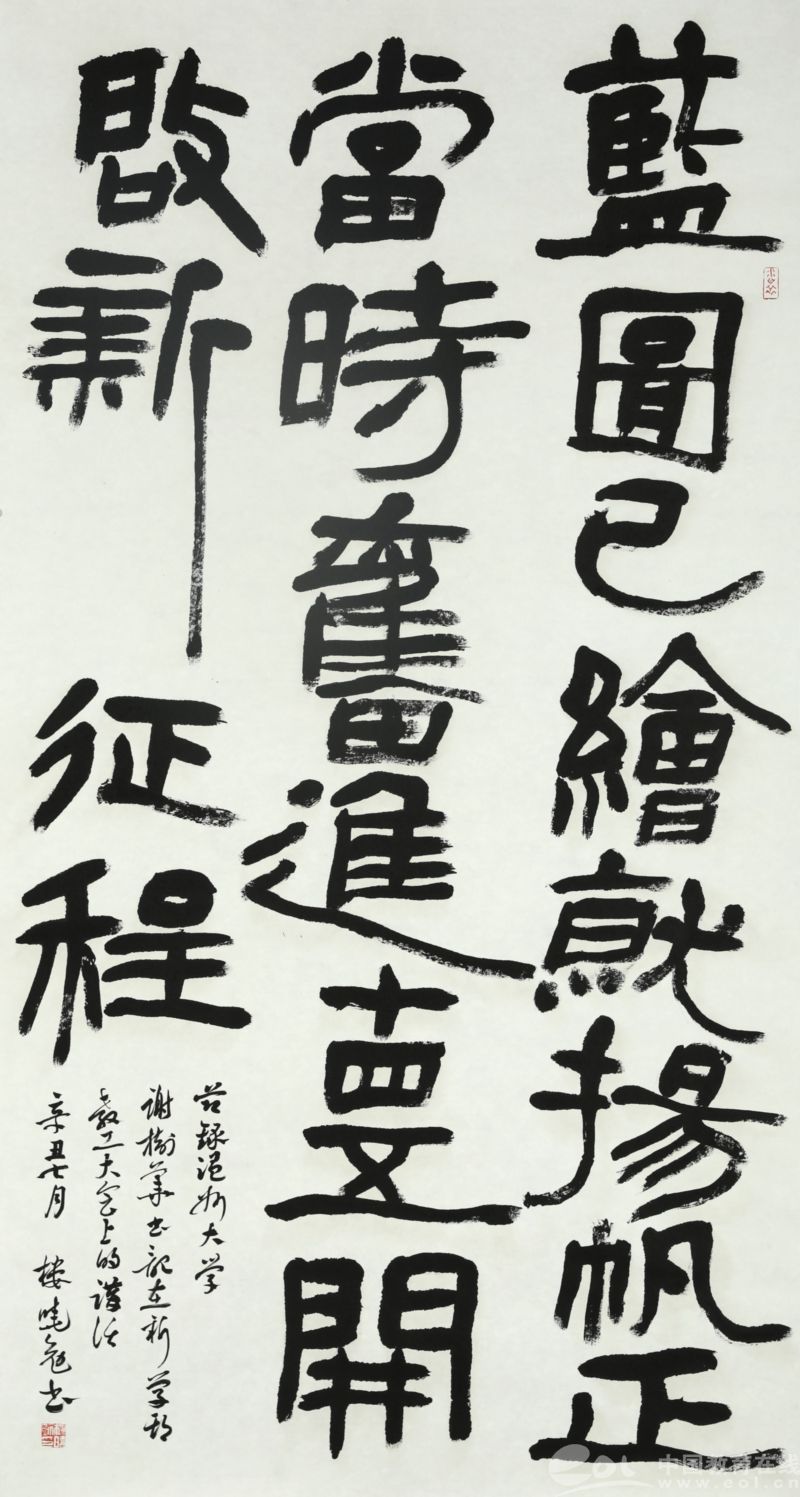 藍圖已繪就揚帆正
當時奮進十四五開
啟新征程
节錄温州大学
谢樹華书記在新学期
教工大会上的講话
辛丑七月 楼曉勉书
eol 中国教育在线
www.eol.cn